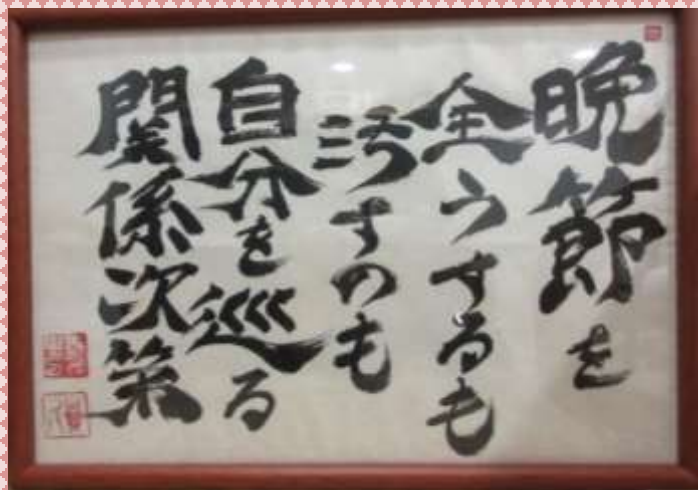 晩節を
全うするも
汚すのも
自分を巡る
関係次第